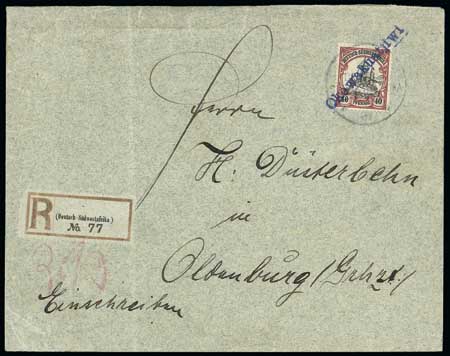 Okawakuatjiwi
DEUTSCH-SÜDWESTAFRIKA
40 PFENNIG 40
Herrn
H. Düsterbehn
in
Oldenburg (Grhzt.)
Einschreiben
R
(Deutsch-Südwestafrika)
No. 77